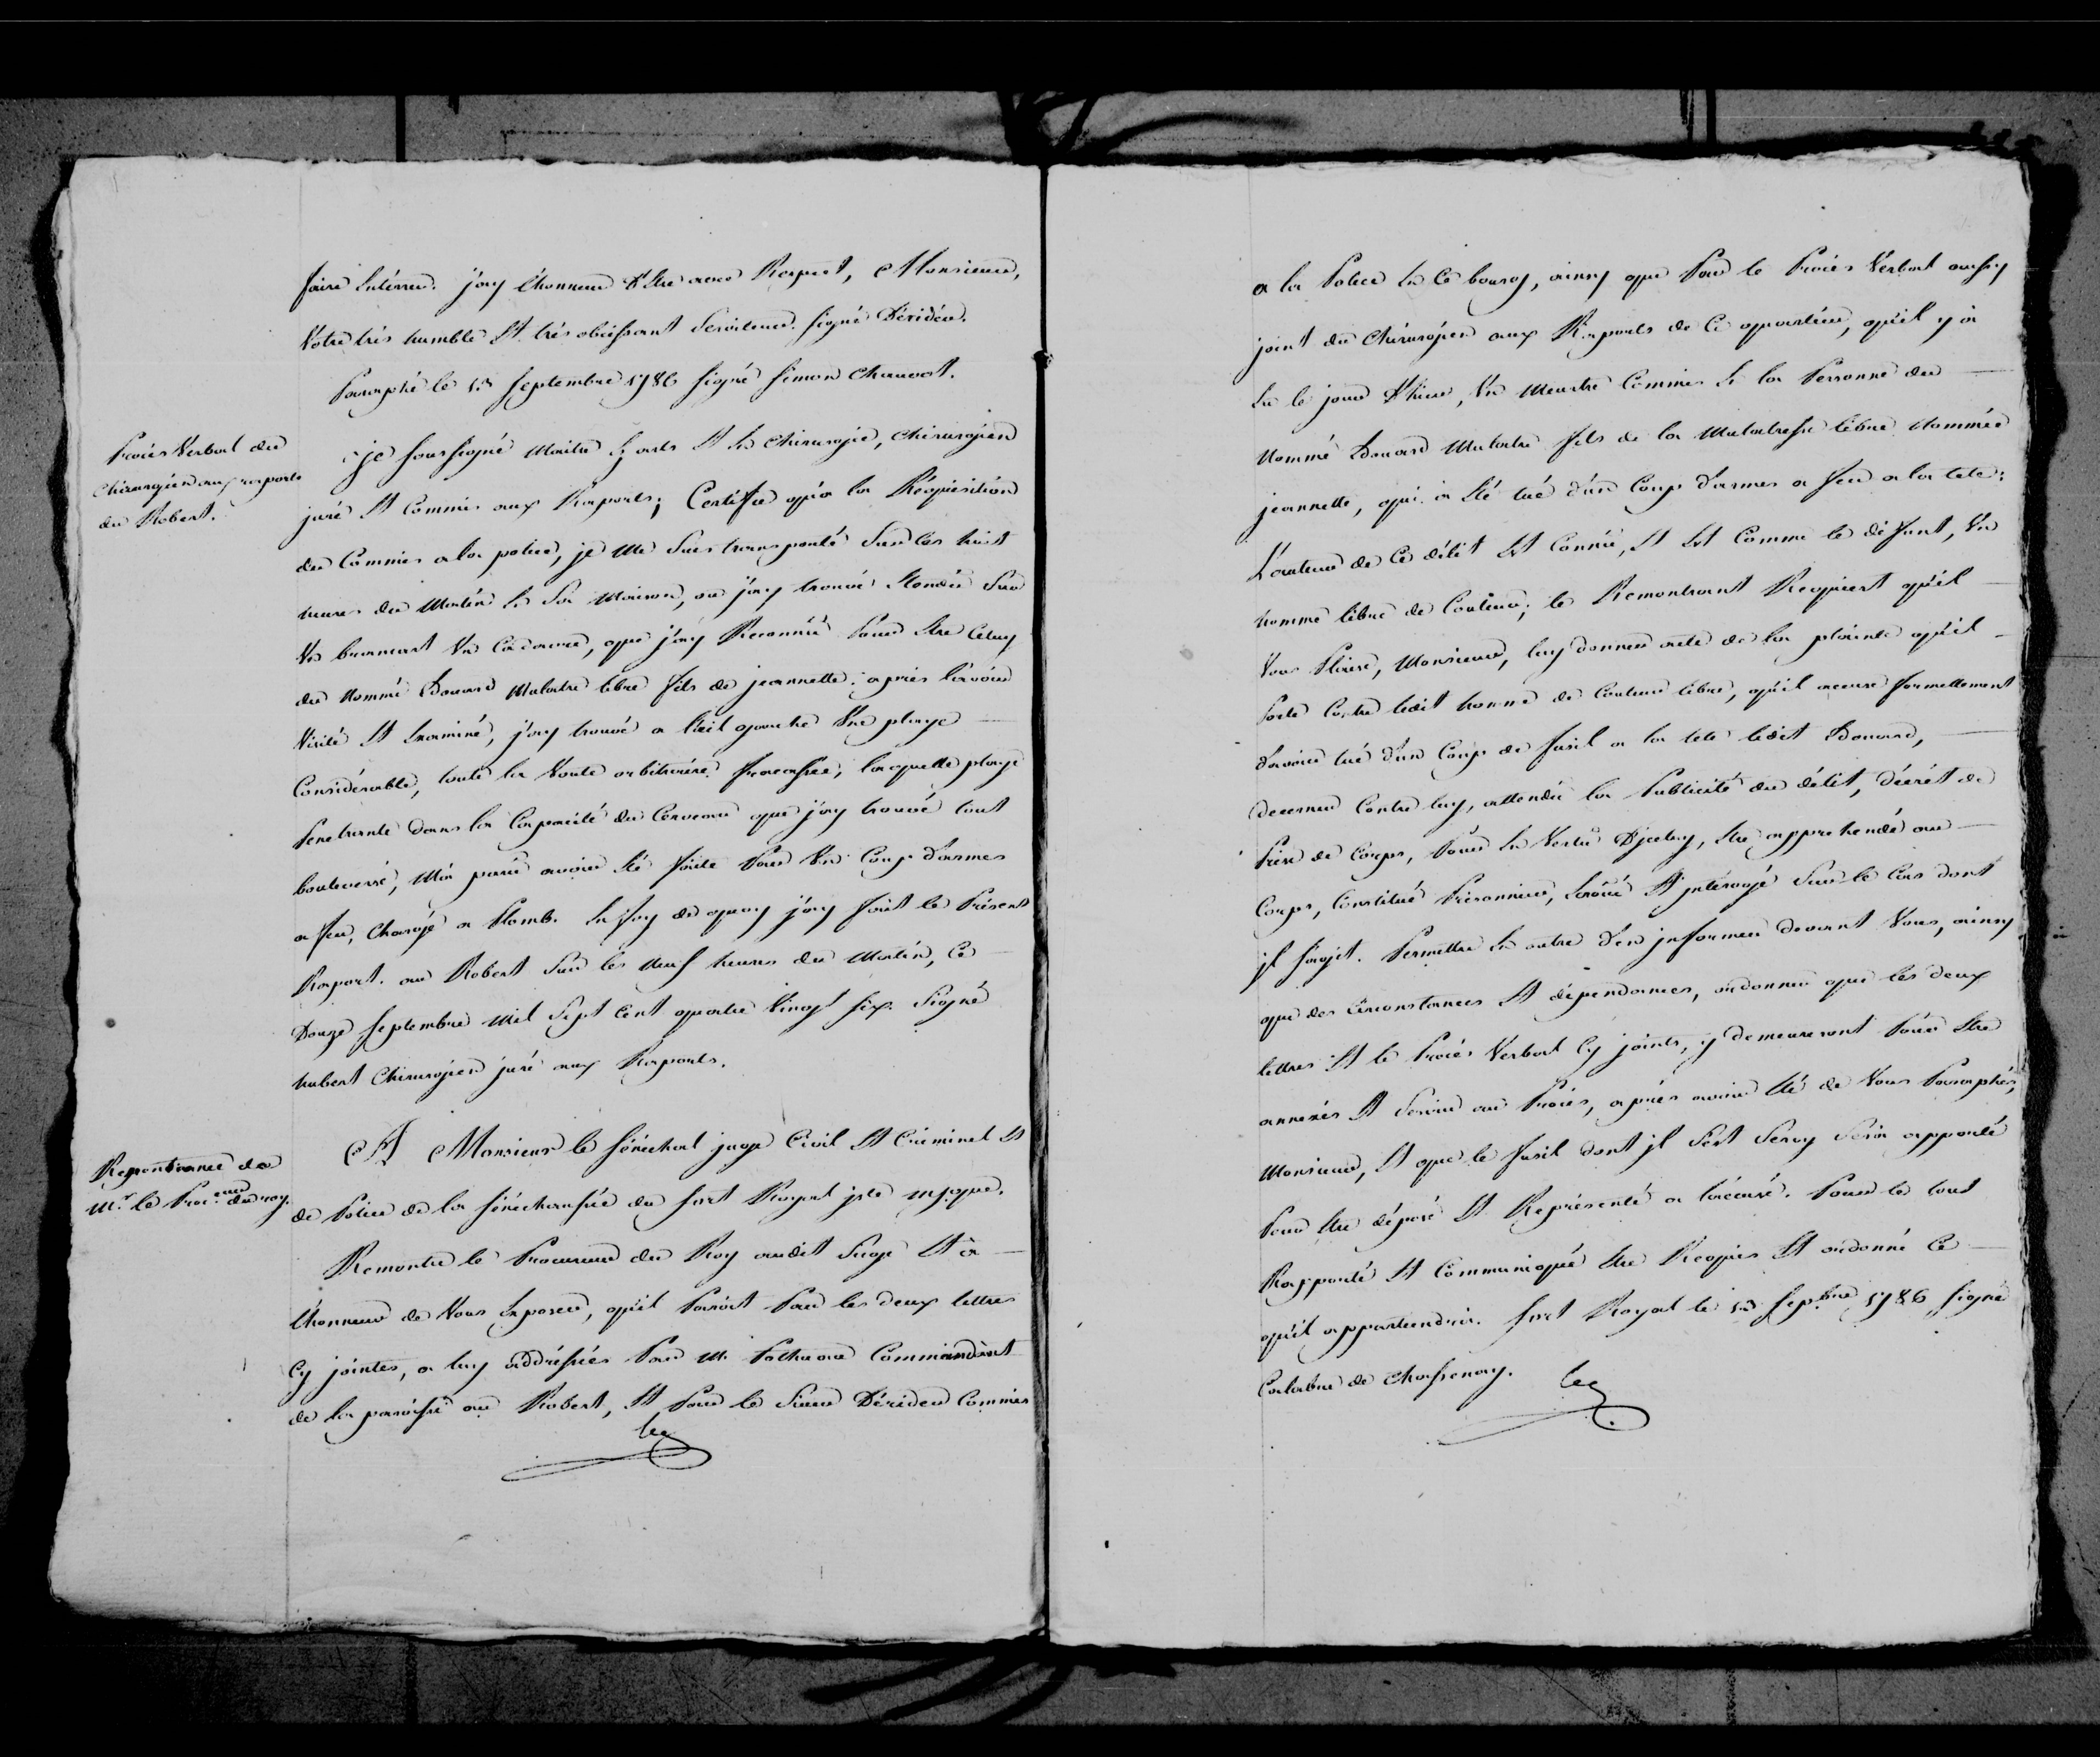 faire Enterrer. j'ay l'honneur d'Etre avec Respect, Monsieur,
Votre très humble Et très obéissant Serviteur. signé Dérideu.
Paraphé le 13 Septembre 1786 signé Simon Chauvot.
Procès Verbal du
Chirurgien aux raports
du Robert.
je soussigné Maitre Ez arts Et En Chirurgie, Chirurgien
juré Et Commis aux Raports; Certifie qu'a la Réquisition
du Commis a la police, je me suis transporté Sur les huit
heures du Matin En Sa Maison, ou j'ay trouvé Etendu Sur
Un brancart Un Cadavre, que j'ay Reconnû Pour Etre Celuy
du Nommé Edouard Mulatre libre fils de jeannette; après l'avoir
Visité Et Examiné, j'ay trouvé a l'œil gauche Une playe
Considérable, toute la Voute orbitraire fracassée, laquelle playe
Penetrante dans la Capacité du Cerveau que j'ay trouvé tout
bouleversé, M'a paru avoir Eté faite Par Un Coup d'armes
a feu, Chargé a Plomb. En foy de quoy j'ay fait le Présent
Raport. au Robert Sur les Neuf heures du Matin, Ce
Douze Septembre Mil Sept Cent quatre Vingt Six. Signé
hubert Chirurgien juré aux Raports.
Remontrance de
Mr. le Proc.eur du roy.
A Monsieur le Sénéchal juge Civil Et Criminel Et
de Police de la Sénéchaussée du fort Royal isle Mque.
Remontre le Procureur du Roy audit Siége Et a
L'honneur de Vous Exposer, qu'il Paroit Par les deux lettres
Cy jointes, a luy addréssées Par M. Commandant
de la paroisse au Robert, Et Par le Sieur Dérideu Commis
a la Police En Ce bourg, ainsy que Par le Procès Verbal aussy
joint du Chirurgien aux Raports de Ce quartier, qu'il y a
Eu le jour d'hier, Un Meurtre Commis En la Personne du
Nommé Edouard Mulatre fils de la Mulatresse libre Nommée
jeannette, qui a Eté tué d'un Coup d'armes a feu a la tete;
L'auteur de Ce délit Est Connû, Et Est Comme le défunt, Un
homme libre de Couleur; le Remontrant Requiert qu'il
Vous Plaise, Monsieur, luy donner acte de la plainte qu'il
Porte Contre ledit homme de Couleur libre, qu'il accuse formellement
d'avoir tué d'un Coup de fusil a la tete ledit Edouard,
decerner Contre luy, attendû la Publicité du délit, décrét de
Prise de Corps, Pour En Vertu D'jceluy, Etre apprehendé au
Corps, Constitué Prisonnier, Ecroüé Et jntérogé Sur le Cas dont
jl s'agit. Permettre En outre d'En jnformer devant Vous, ainsy
que des Circonstances Et dépendances, ordonner que les deux
lettres Et le Procès Verbal Cy joints, y demeureront Pour Etre
annexés Et Servir au Procès, après avoir Eté de Vous Paraphés,
Monsieur, Et que le fusil dont jl S'est Servy Sera apporté
Pour Etre déposé Et Représenté a l'accusé. Pour le tout
Rapporté Et Communiqué Etre Requis Et ordonné Ce
qu'il appartiendra. fort Royal le 13 Sep.bre 1786 Signé
Calabre de Chassenay.